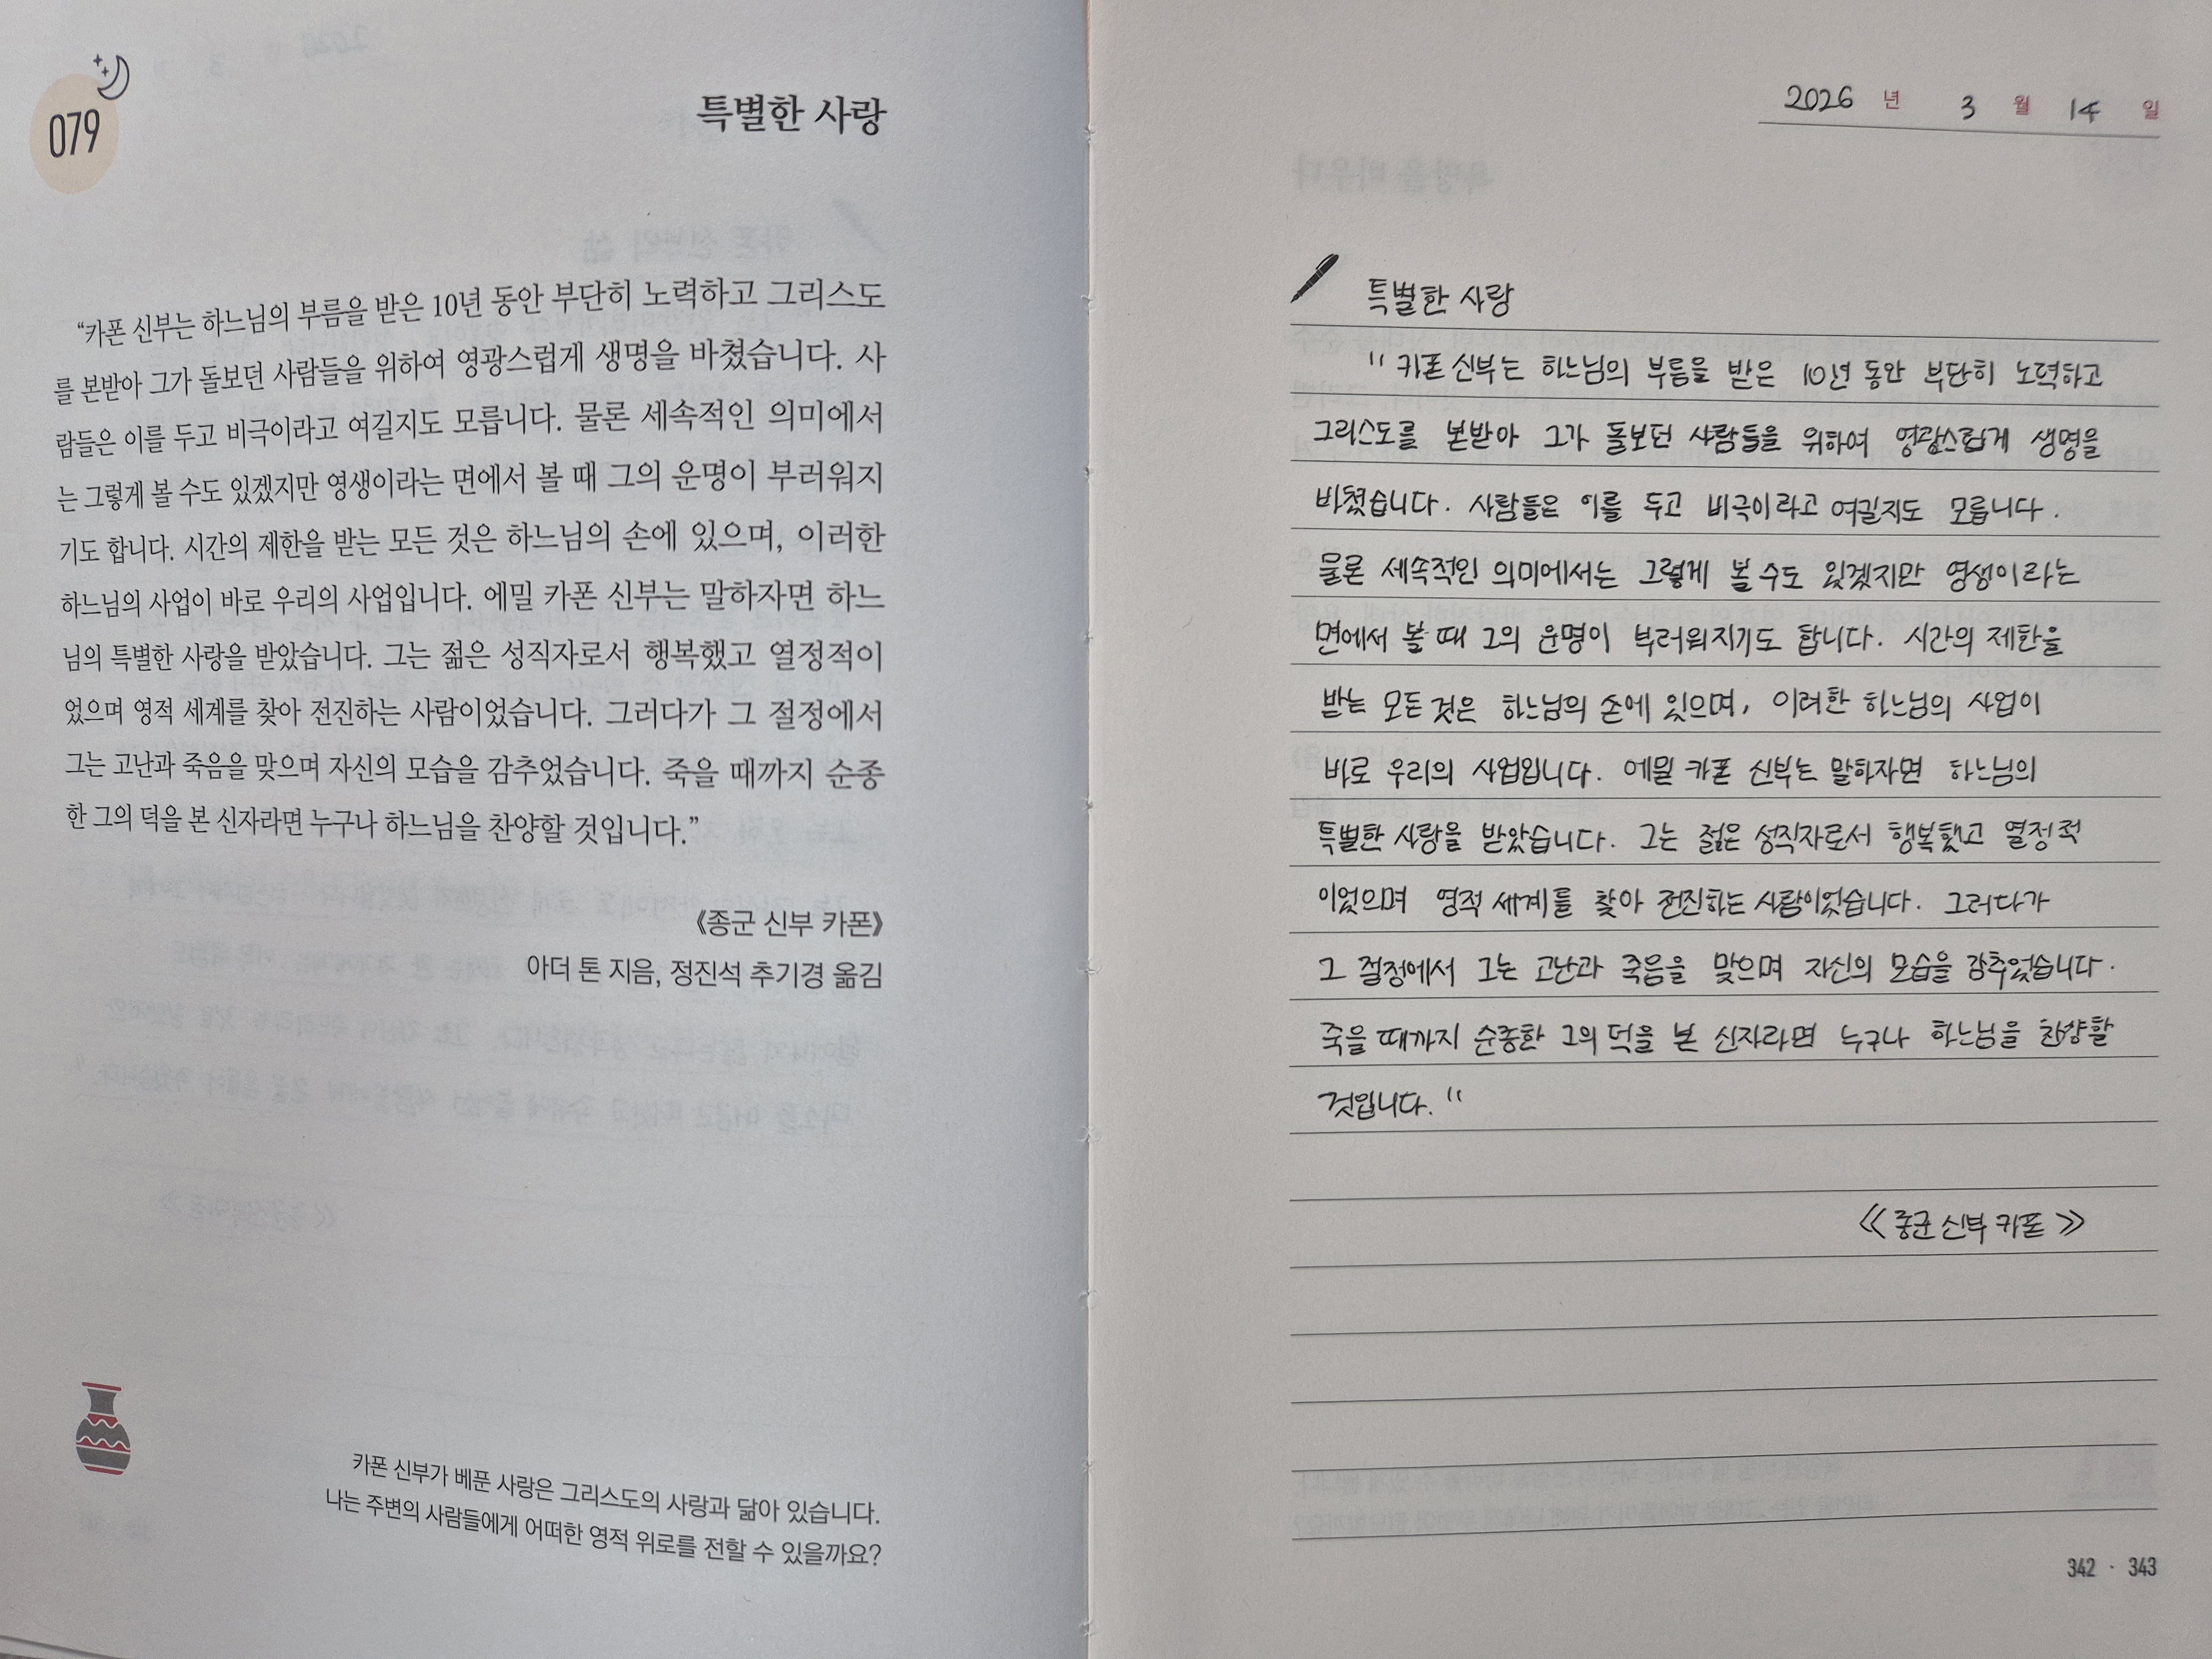 079
특별한 사랑
“카폰 신부는 하느님의 부름을 받은 10년 동안 부단히 노력하고 그리스도
를 본받아 그가 돌보던 사람들을 위하여 영광스럽게 생명을 바쳤습니다. 사
람들은 이를 두고 비극이라고 여길지도 모릅니다. 물론 세속적인 의미에서
는 그렇게 볼 수도 있겠지만 영생이라는 면에서 볼 때 그의 운명이 부러워지
기도 합니다. 시간의 제한을 받는 모든 것은 하느님의 손에 있으며, 이러한
하느님의 사업이 바로 우리의 사업입니다. 에밀 카폰 신부는 말하자면 하느
님의 특별한 사랑을 받았습니다. 그는 젊은 성직자로서 행복했고 열정적이
었으며 영적 세계를 찾아 전진하는 사람이었습니다. 그러다가 그 절정에서
그는 고난과 죽음을 맞으며 자신의 모습을 감추었습니다. 죽을 때까지 순종
한 그의 덕을 본 신자라면 누구나 하느님을 찬양할 것입니다.”
《종군 신부 카폰》
아더 톤 지음, 정진석 추기경 옮김
카폰 신부가 베푼 사랑은 그리스도의 사랑과 닮아 있습니다.
나는 주변의 사람들에게 어떠한 영적 위로를 전할 수 있을까요?
2026 년 3 월 14 일
특별한 사랑
" 카폰 신부는 하느님의 부름을 받은 10년 동안 부단히 노력하고
그리스도를 본받아 그가 돌보던 사람들을 위하여 영광스럽게 생명을
바쳤습니다. 사람들은 이를 두고 비극이라고 여길지도 모릅니다.
물론 세속적인 의미에서는 그렇게 볼 수도 있겠지만 영생이라는
면에서 볼 때 그의 운명이 부러워지기도 합니다. 시간의 제한을
받는 모든 것은 하느님의 손에 있으며, 이러한 하느님의 사업이
바로 우리의 사업입니다. 에밀 카폰 신부는 말하자면 하느님의
특별한 사랑을 받았습니다. 그는 젊은 성직자로서 행복했고 열정적
이었으며 영적 세계를 찾아 전진하는 사람이었습니다. 그러다가
그 절정에서 그는 고난과 죽음을 맞으며 자신의 모습을 감추었습니다.
죽을 때까지 순종한 그의 덕을 본 신자라면 누구나 하느님을 찬양할
것입니다. "
《 종군 신부 카폰 》
342 · 343